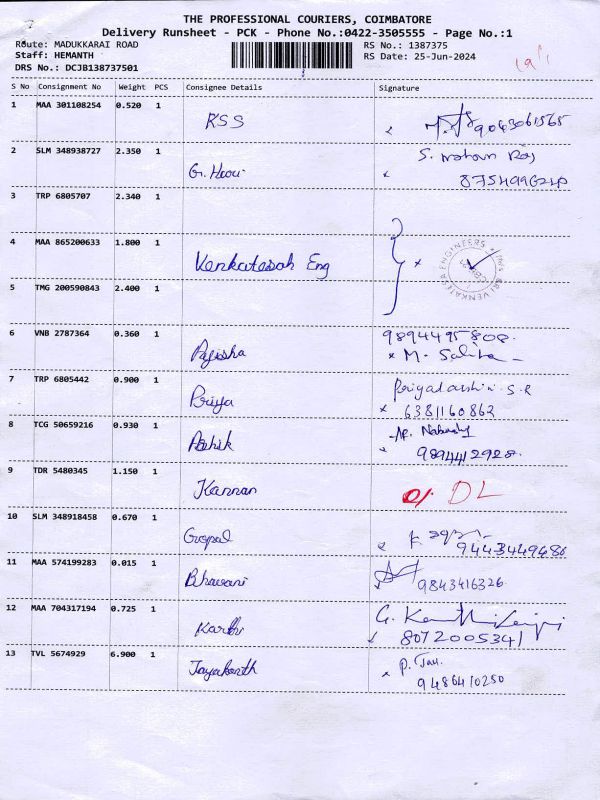 THE PROFESSIONAL COURIERS, COIMBATORE
Delivery Runsheet - PCK - Phone No.:0422-3505555 - Page No.:1
Route: MADUKKARAI ROAD RS No.: 1387375
Staff: HEMANTH RS Date: 25-Jun-2024
DRS No.: DCJB138737501
S No Consignment No Weight PCS Consignee Details Signature
1 MAA 301108254 0.520 1 RSS 9043061565
2 SLM 348938727 2.350 1 G. S. Raj
3 TRP 6805707 2.340 1
4 MAA 865200633 1.800 1 Venkatesah Eng
5 TMG 200590843 2.400 1
9894495808
6 VNB 2787364 0.360 1 M.
7 TRP 6805442 0.900 1 Priya Priyadarshini S.R
6381160862
8 TCG 50659216 0.930 1
9894412928
9 TDR 5480345 1.150 1 Kannan DL
10 SLM 348918458 0.670 1 Gopal
9443449686
11 MAA 574199283 0.015 1 Bhavani 9843416326
12 MAA 704317194 0.725 1 Karthi G.
8072005341
13 TVL 5674929 6.900 1 Jayakanth P.
9486410250